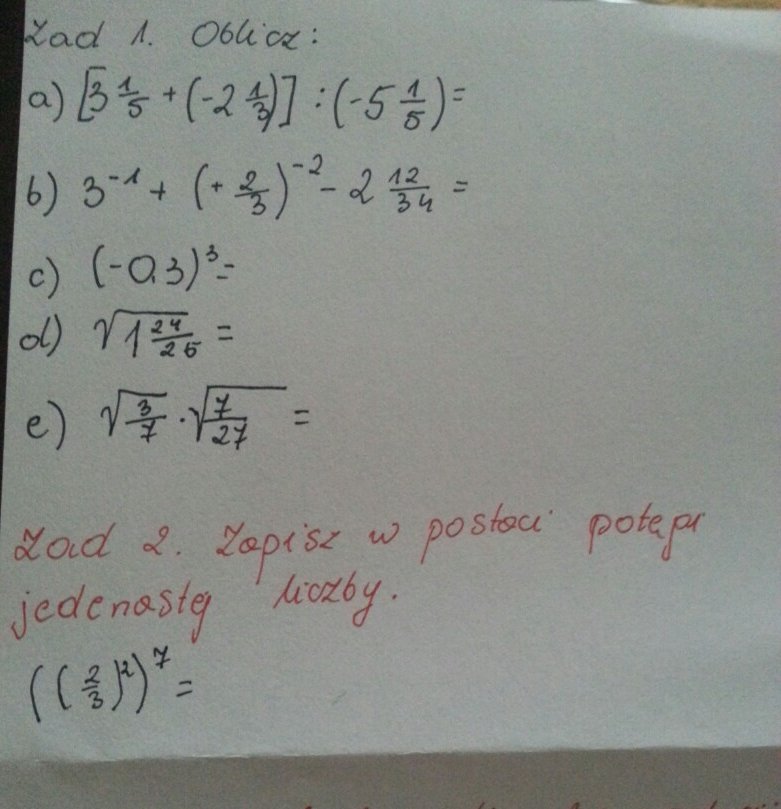 Zad 1. Oblicz:
a) [3 1/5 + (-2 1/3)] : (-5 1/5) =
b) 3^-1 + (+ 2/3)^-2 - 2 12/34 =
c) (-0,3)^3 =
d) √(1 24/25) =
e) √(3/7) · √(7/27) =
Zad 2. Zapisz w postaci potęgi
jedenastej liczby.
((2/3)^2)^7 =